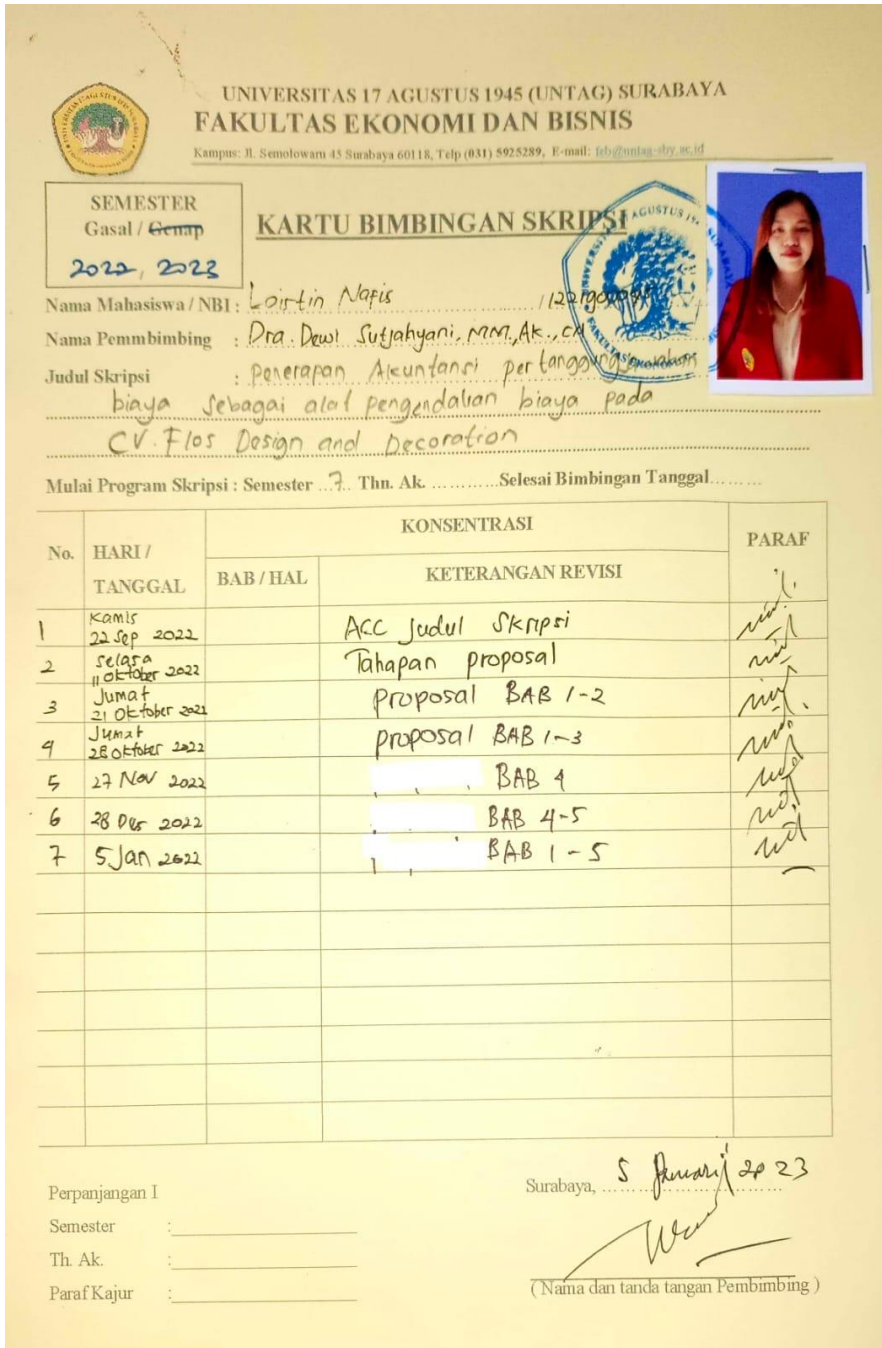 UNIVERSITAS 17 AGUSTUS 1945 (UNTAG) SURABAYA
FAKULTAS EKONOMI DAN BISNIS
Kampus: Jl. Semolowaru 45 Surabaya 60118, Telp (031) 5925289, E-mail: feb@untag-sby.ac.id
SEMESTER
Gasal / Genap
2022, 2023
KARTU BIMBINGAN SKRIPSI
Nama Mahasiswa / NBI : Loirtin Nafis /
Nama Pemmbimbing : Dra. Dewi Sutjahyani, MM., Ak., CA
Judul Skripsi : Penerapan Akuntansi pertanggungjawaban
biaya sebagai alat pengendalian biaya pada
CV. Flos Design and Decoration
Mulai Program Skripsi : Semester ...7.. Thn. Ak. ............Selesai Bimbingan Tanggal.........
No. HARI / TANGGAL KONSENTRASI PARAF
BAB / HAL KETERANGAN REVISI
1 Kamis 22 Sep 2022 ACC Judul Skripsi
2 Selasa 11 Oktober 2022 Tahapan proposal
3 Jumat 21 Oktober 2022 proposal BAB 1-2
4 Jumat 28 Oktober 2022 proposal BAB 1-3
5 27 Nov 2022 BAB 4
6 28 Des 2022 BAB 4-5
7 5 Jan 2022 BAB 1-5
Perpanjangan I
Semester :
Th. Ak. :
Paraf Kajur :
Surabaya, 5 Januari 2023
( Nama dan tanda tangan Pembimbing )